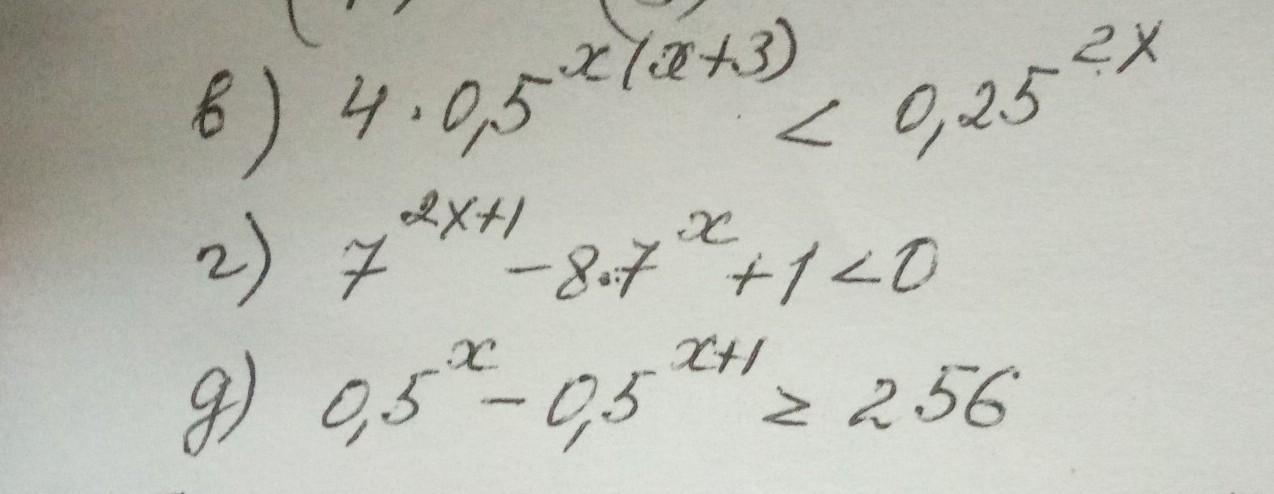 в) 4 · 0,5^{x(x+3)} < 0,25^{2x}
г) 7^{2x+1} - 8·7^{x} + 1 < 0
д) 0,5^{x} - 0,5^{x+1} ≥ 256